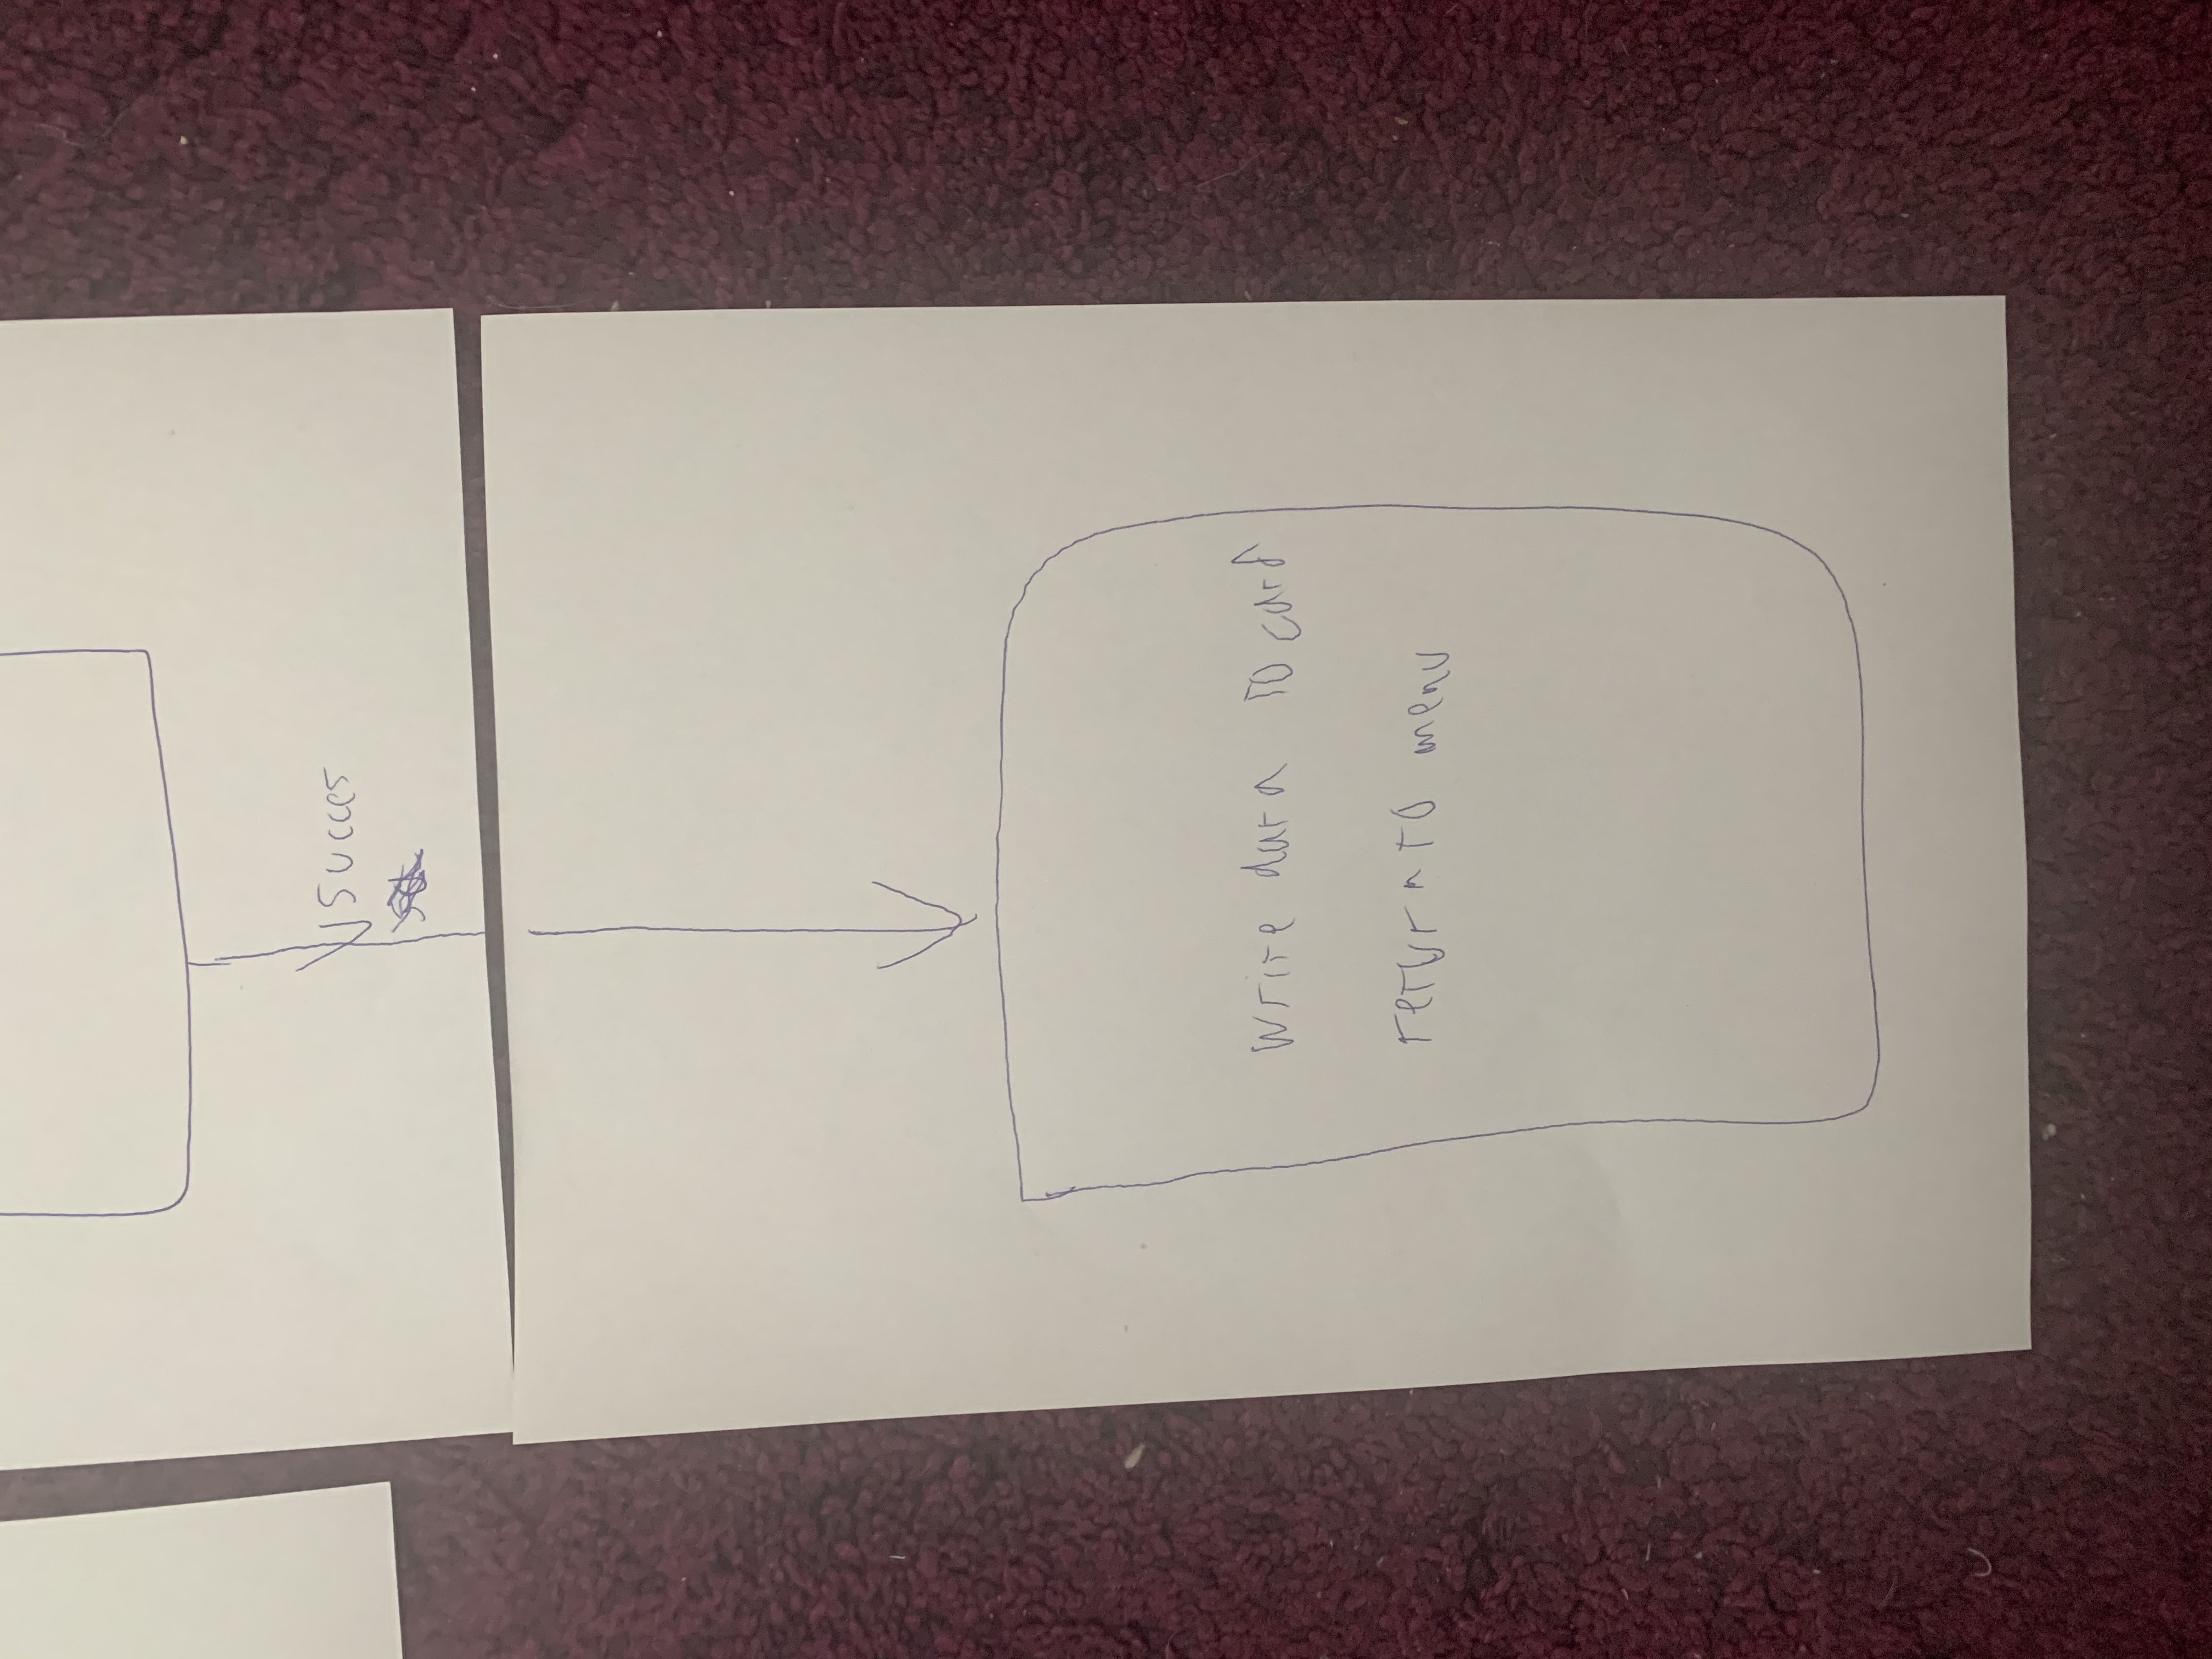 Succes
write data to card
return to menu